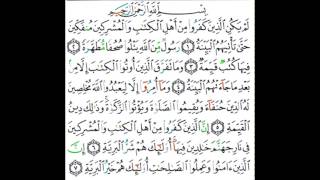 بِسْمِ اللَّهِ الرَّحْمَٰنِ الرَّحِيمِ
لَمْ يَكُنِ الَّذِينَ كَفَرُوا مِنْ أَهْلِ الْكِتَابِ وَالْمُشْرِكِينَ مُنفَكِّينَ
حَتَّىٰ تَأْتِيَهُمُ الْبَيِّنَةُ ١ رَسُولٌ مِّنَ اللَّهِ يَتْلُو صُحُفًا مُّطَهَّرَةً ٢
فِيهَا كُتُبٌ قَيِّمَةٌ ٣ وَمَا تَفَرَّقَ الَّذِينَ أُوتُوا الْكِتَابَ إِلَّا مِن
بَعْدِ مَا جَاءَتْهُمُ الْبَيِّنَةُ ٤ وَمَا أُمِرُوا إِلَّا لِيَعْبُدُوا اللَّهَ مُخْلِصِينَ
لَهُ الدِّينَ حُنَفَاءَ وَيُقِيمُوا الصَّلَاةَ وَيُؤْتُوا الزَّكَاةَ وَذَٰلِكَ دِينُ
الْقَيِّمَةِ ٥ إِنَّ الَّذِينَ كَفَرُوا مِنْ أَهْلِ الْكِتَابِ وَالْمُشْرِكِينَ
فِي نَارِ جَهَنَّمَ خَالِدِينَ فِيهَا أُولَٰئِكَ هُمْ شَرُّ الْبَرِيَّةِ ٦ إِنَّ
الَّذِينَ آمَنُوا وَعَمِلُوا الصَّالِحَاتِ أُولَٰئِكَ هُمْ خَيْرُ الْبَرِيَّةِ ٧